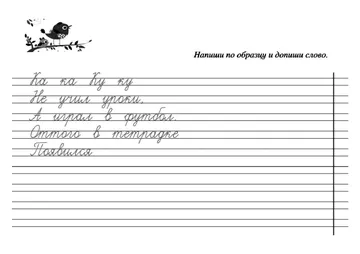 Напиши по образцу и допиши слово.
Ка ка Ку ку
Не учил уроки,
А играл в футбол.
Оттого в тетрадке
Появился